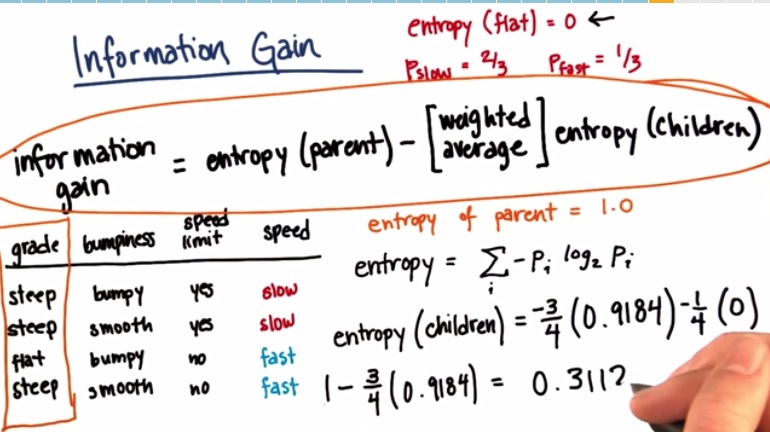 Information Gain
entropy (flat) = 0 ←
Pslow = 2/3 Pfast = 1/3
information gain = entropy (parent) - [weighted average] entropy (children)
entropy of parent = 1.0
grade bumpiness speed limit speed
steep bumpy yes slow
steep smooth yes slow
flat bumpy no fast
steep smooth no fast
entropy = Σ - Pi log2 Pi
i
entropy (children) = -3/4 (0.9184) - 1/4 (0)
1 - 3/4 (0.9184) = 0.3112